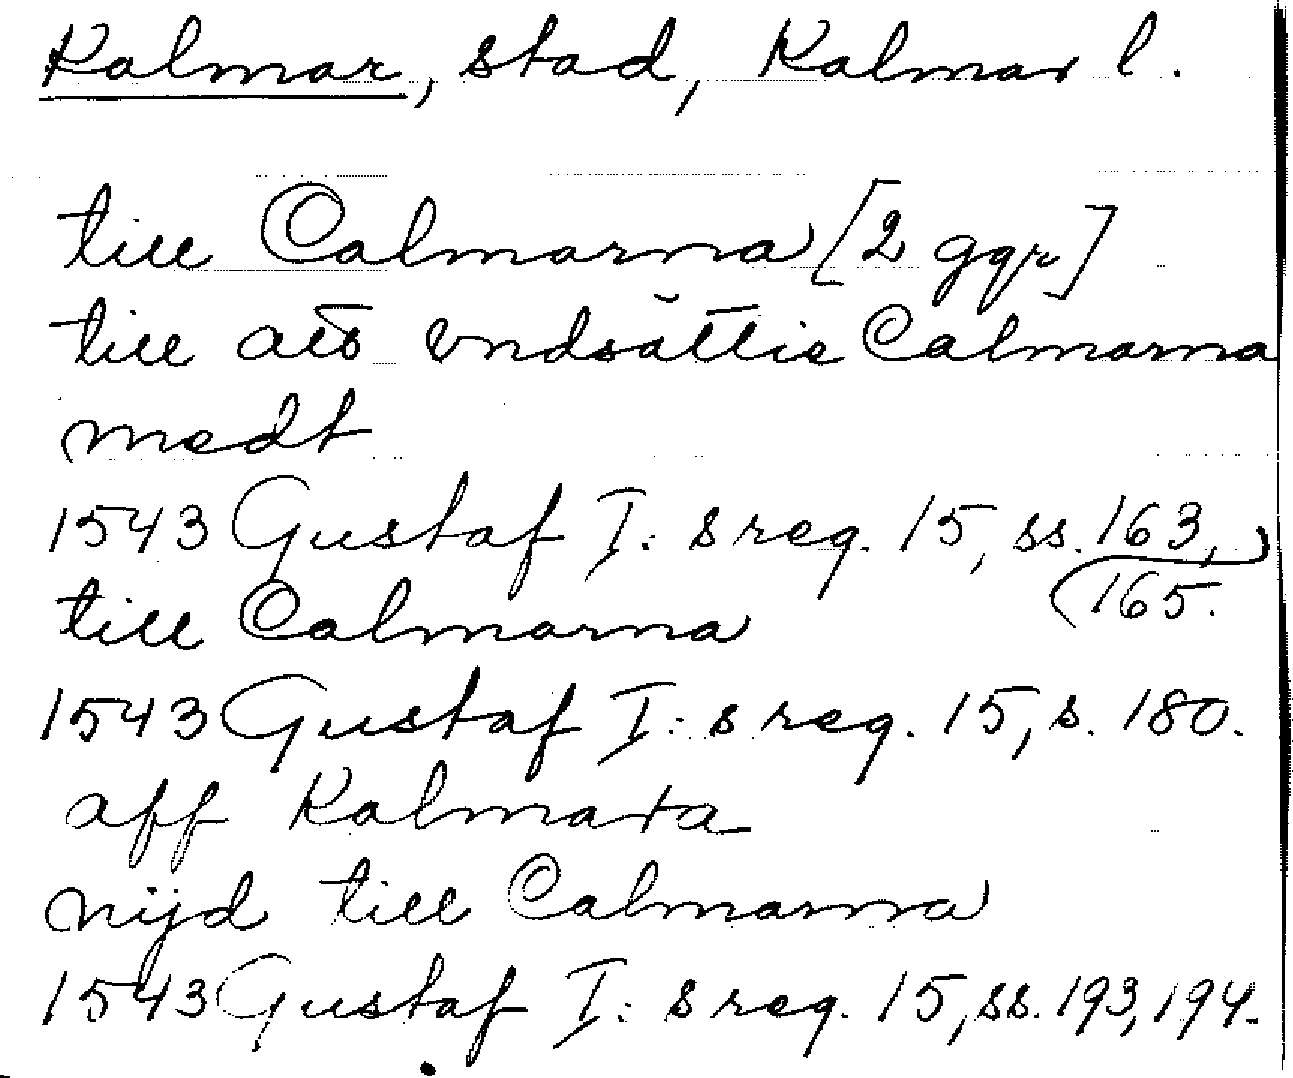 Kalmar, stad, Kalmar l.
till Calmarna [2 ggr]
till att vndsättie Calmarna
medt
1543 Gustaf I: s reg. 15, ss. 163,
165.
till Calmarna
1543 Gustaf I: s reg. 15, s. 180.
aff Kalmara
nijd till Calmarna
1543 Gustaf I: s reg. 15, ss. 193, 194.